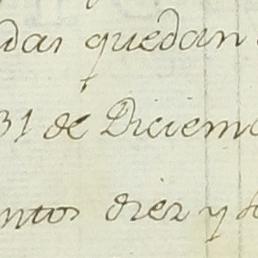 das quedan
31 de Diciem
ntos diez y